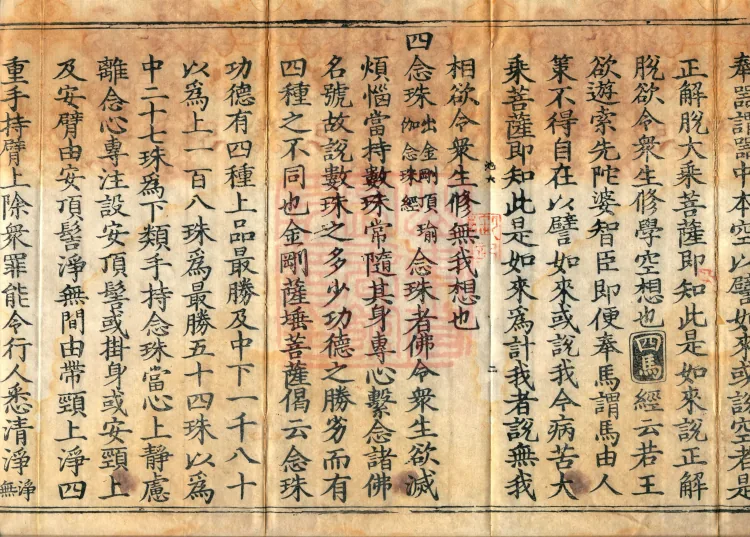 奉器謂器中本空以譬如來或說空者是
正解脫大乘菩薩即知此是如來說正解
脫欲令衆生修學空想也 四馬 經云若王
欲遊索先陀婆智臣即便奉馬謂馬由人
策不得自在以譬如來或說我今病苦大
乘菩薩即知此是如來爲計我者說無我
二
相欲令衆生修無我想也
四念珠出金剛頂瑜伽念珠經念珠者佛令衆生欲滅
煩惱當持數珠常隨其身專心繫念諸佛
名號故說數珠之多少功德之勝劣而有
四種之不同也金剛薩埵菩薩偈云念珠
功德有四種上品最勝及中下一千八十
以爲上一百八珠爲最勝五十四珠以爲
中二十七珠爲下類手持念珠當心上靜慮
離念心專注設安頂髻或掛身或安頸上
及安臂由安頂髻淨無間由帶頸上淨四
重手持臂上除衆罪能令行人悉清淨淨無